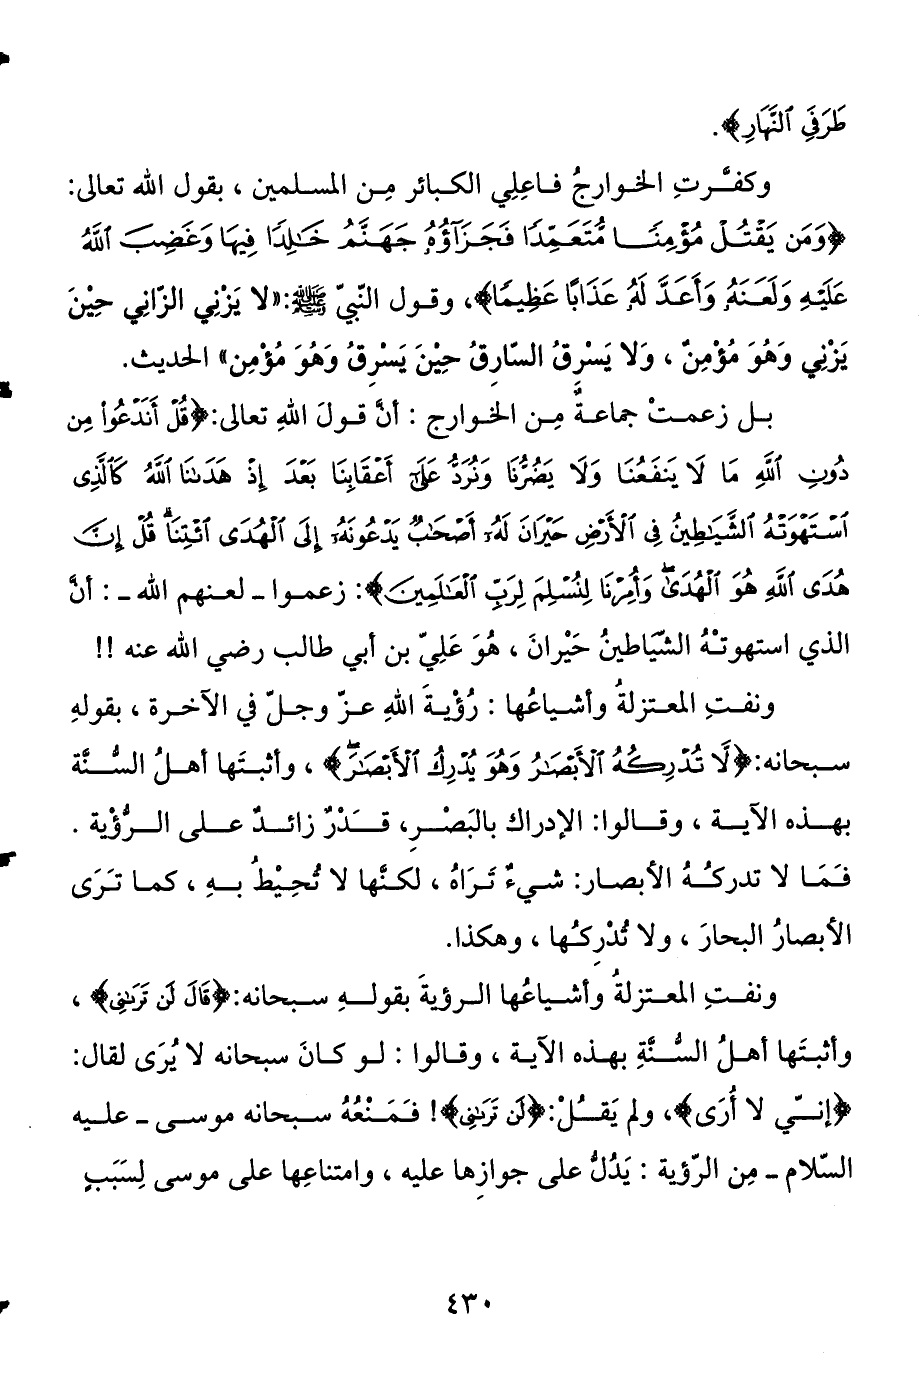 طَرَفَيِ ٱلنَّهَارِ﴾.
وكفَّرتِ الخوارجُ فاعِلِي الكبائر مِن المسلمين ، بقول الله تعالى:
﴿وَمَن يَقْتُلْ مُؤْمِنًا مُّتَعَمِّدًا فَجَزَآؤُهُ جَهَنَّمُ خَٰلِدًا فِيهَا وَغَضِبَ ٱللَّهُ
عَلَيْهِ وَلَعَنَهُ وَأَعَدَّ لَهُ عَذَابًا عَظِيمًا﴾، وقول النبيّ ﷺ:«لا يَزْنِي الزّاني حِيْنَ
يَزْنِي وَهُوَ مُؤْمِنٌ ، وَلا يَسْرِقُ السّارِقُ حِيْنَ يَسْرِقُ وَهُوَ مُؤْمِن» الحديث.
بل زعمتْ جماعةٌ مِن الخوارج : أنَّ قولَ اللهِ تعالى:﴿قُلْ أَنَدْعُوا۟ مِن
دُونِ ٱللَّهِ مَا لَا يَنفَعُنَا وَلَا يَضُرُّنَا وَنُرَدُّ عَلَىٰٓ أَعْقَابِنَا بَعْدَ إِذْ هَدَىٰنَا ٱللَّهُ كَٱلَّذِى
ٱسْتَهْوَتْهُ ٱلشَّيَٰطِينُ فِى ٱلْأَرْضِ حَيْرَانَ لَهُۥٓ أَصْحَٰبٌ يَدْعُونَهُۥٓ إِلَى ٱلْهُدَى ٱئْتِنَا ۗ قُلْ إِنَّ
هُدَى ٱللَّهِ هُوَ ٱلْهُدَىٰ ۖ وَأُمِرْنَا لِنُسْلِمَ لِرَبِّ ٱلْعَٰلَمِينَ﴾: زعموا ـ لعنهم الله ـ : أنَّ
الذي استهوتْهُ الشّيَاطينُ حَيْرانَ ، هُوَ عَلِيّ بن أبي طالب رضي الله عنه !!
ونفتِ المعتزلةُ وأشياعُها : رُؤْيةَ اللهِ عزّ وجلّ في الآخرة ، بقولهِ
سبحانه:﴿لَّا تُدْرِكُهُ ٱلْأَبْصَٰرُ وَهُوَ يُدْرِكُ ٱلْأَبْصَٰرَ ۖ﴾ ، وأثبتَها أهلُ السُّنَّة
بهذه الآية ، وقالوا: الإدراك بالبَصْرِ، قَدْرٌ زائدٌ على الرُّؤْية .
فَمَا لا تدركُهُ الأبصار: شيءٌ تَرَاهُ ، لكنَّها لا تُحِيْطُ بهِ ، كما تَرَى
الأبصارُ البحارَ ، ولا تُدْرِكُها ، وهكذا.
ونفتِ المعتزلةُ وأشياعُها الرؤيةَ بقولهِ سبحانه:﴿قَالَ لَن تَرَىٰنِى﴾ ،
وأثبتَها أهلُ السُّنَّةِ بهذه الآية ، وقالوا : لو كانَ سبحانه لا يُرَى لقال:
﴿إنّي لا أُرَى﴾، ولم يَقُلْ:﴿لَن تَرَىٰنِى﴾! فَمَنْعُهُ سبحانه موسى ـ عليه
السّلام ـ مِن الرّؤية : يَدُلُّ على جوازِها عليه ، وامتناعِها على موسى لِسَبَبٍ
٤٣٠